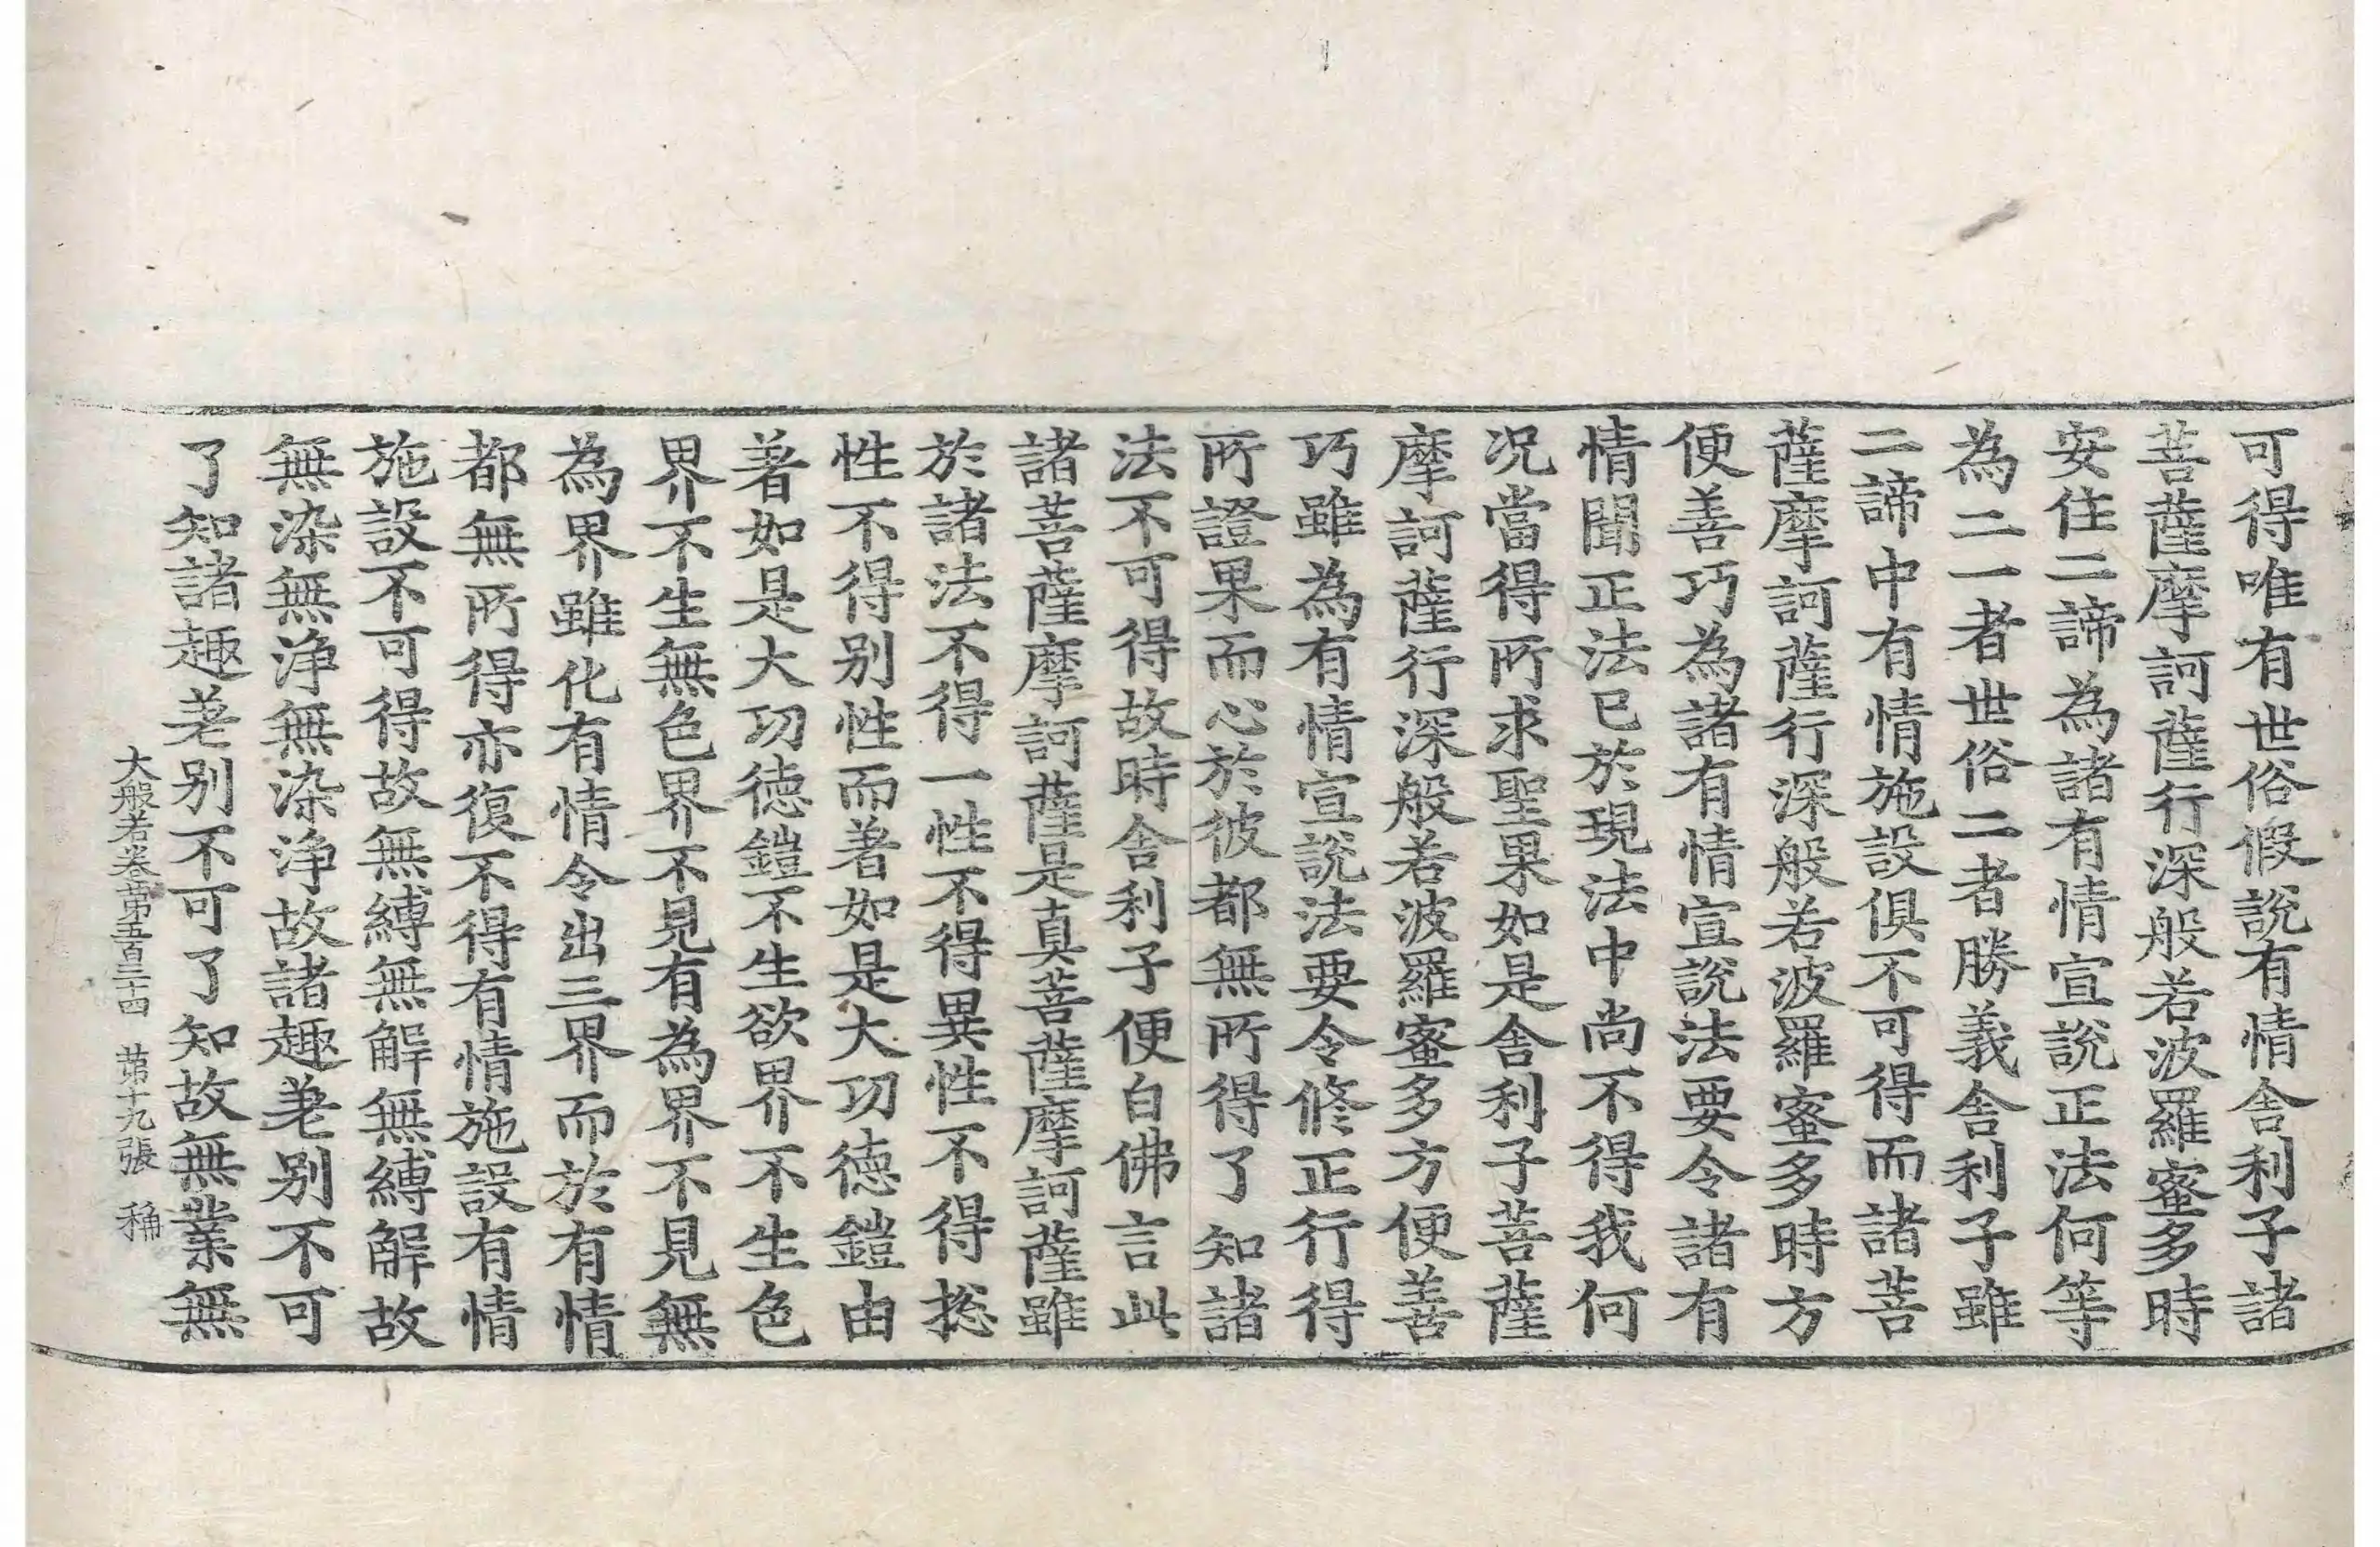 可得唯有世俗假說有情舎利子諸
菩薩摩訶薩行深般若波羅蜜多時
安住二諦為諸有情宣說正法何等
為二一者世俗二者勝義舎利子雖
二諦中有情施設俱不可得而諸菩
薩摩訶薩行深般若波羅蜜多時方
便善巧為諸有情宣說法要令諸有
情聞正法已於現法中尚不得我何
况當得所求聖果如是舎利子菩薩
摩訶薩行深般若波羅蜜多方便善
巧雖為有情宣說法要令修正行得
所證果而心於彼都無所得了知諸
法不可得故時舎利子便白佛言此
諸菩薩摩訶薩是真菩薩摩訶薩雖
於諸法不得一性不得異性不得捴
性不得别性而著如是大功徳鎧由
著如是大功徳鎧不生欲界不生色
界不生無色界不見有為界不見無
為界雖化有情令出三界而於有情
都無所得亦復不得有情施設有情
施設不可得故無縛無解無縛解故
無染無淨無染淨故諸趣差别不可
了知諸趣差别不可了知故無業無
大般若卷苐五百三十四　苐十九張　稱